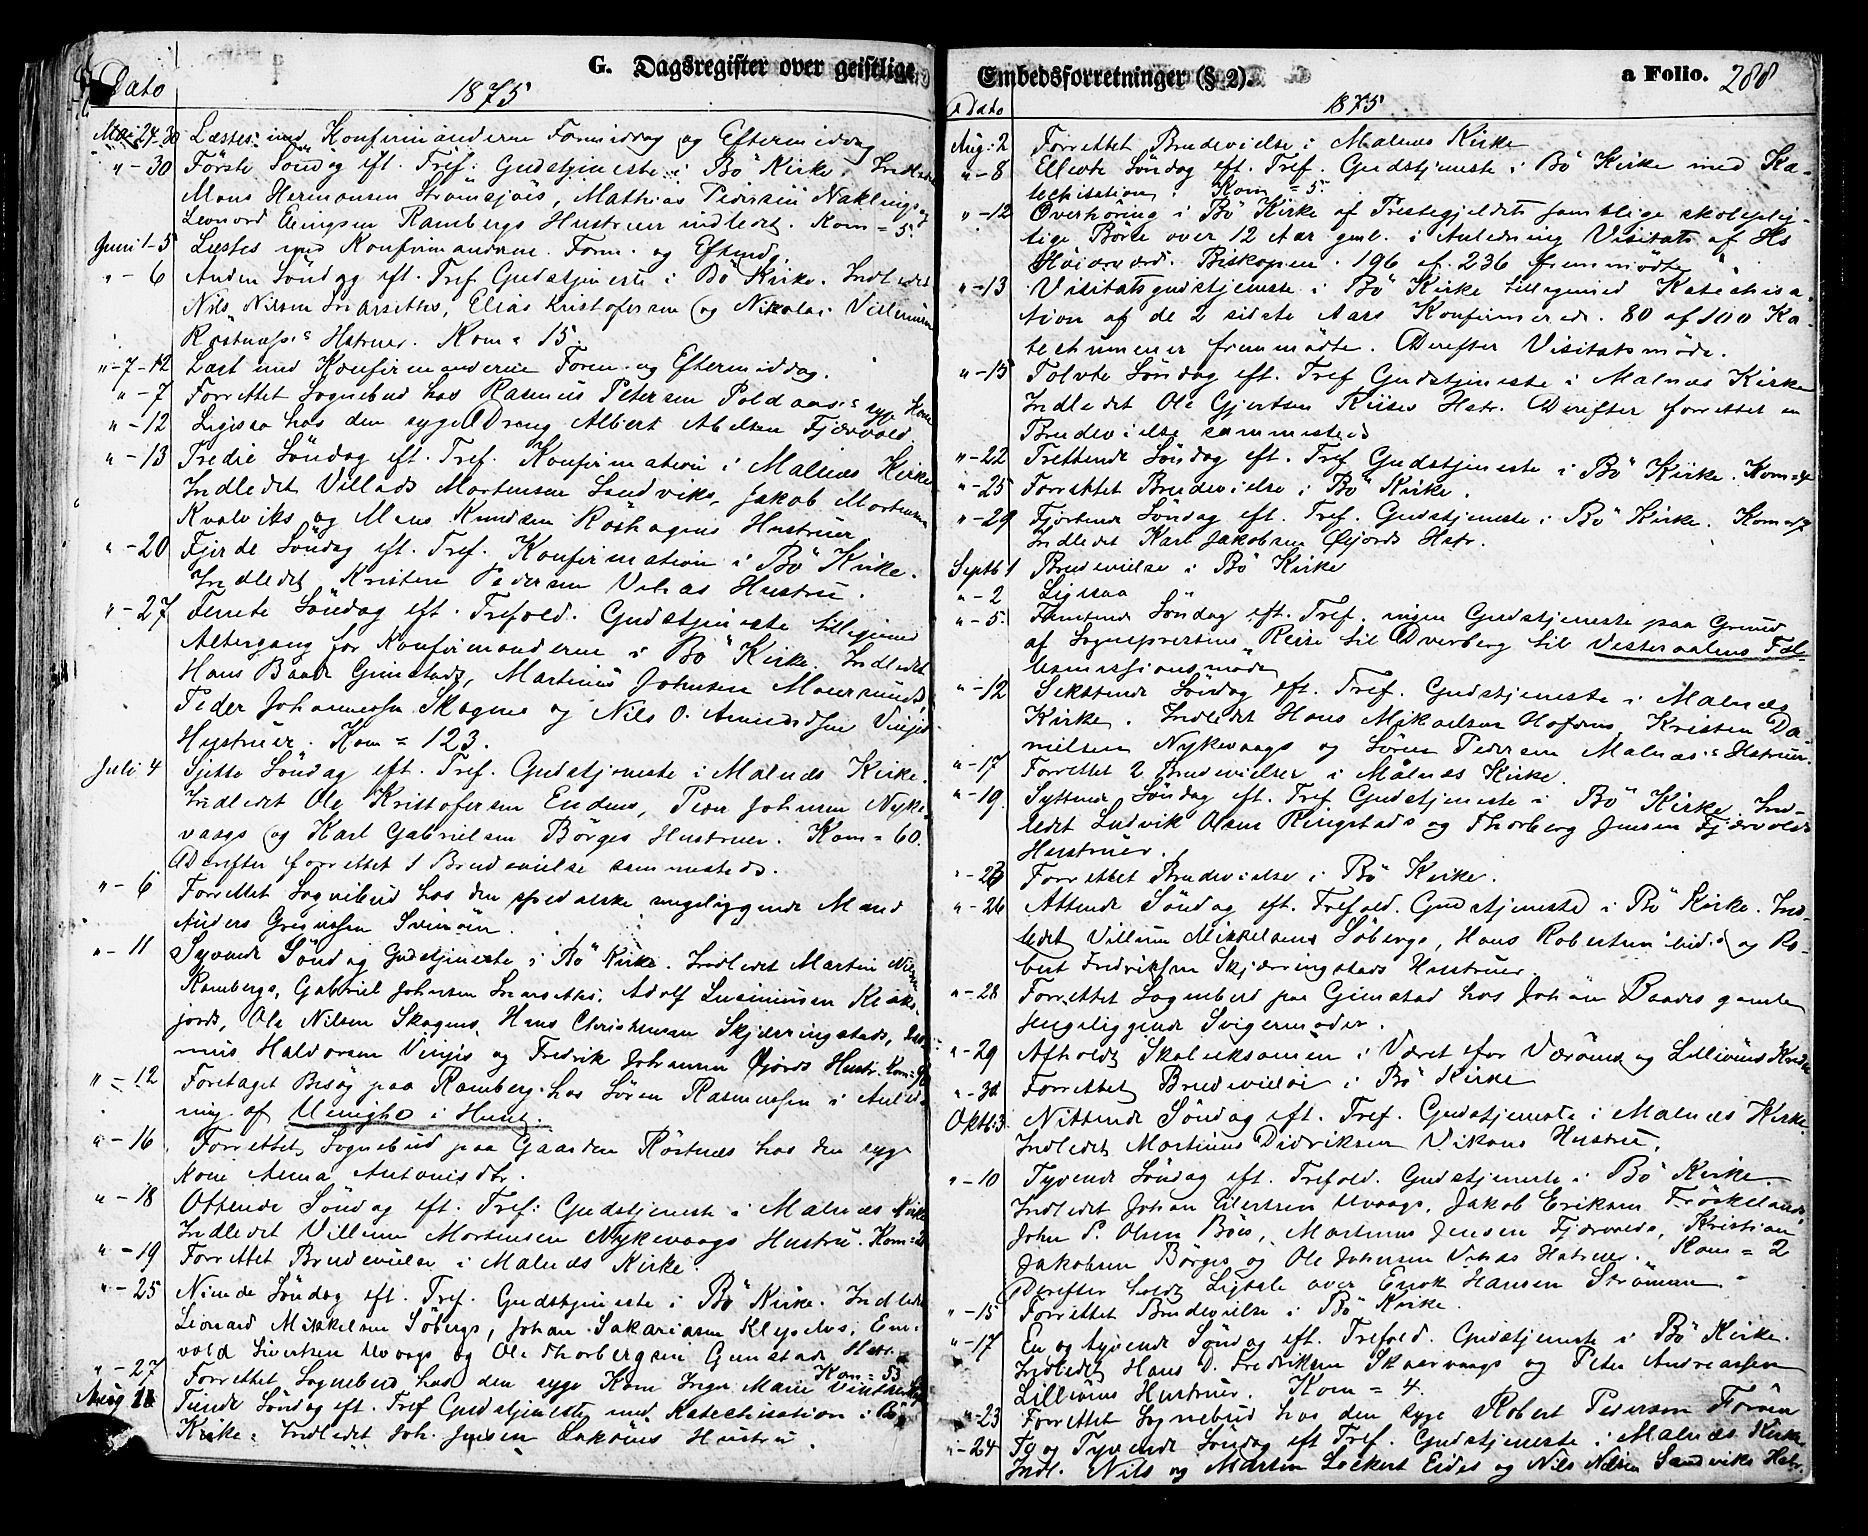 G. Dagsregister over geistlige
Dato 1875
Mai 24-30 Læstes med Konfirmanderne Formiddag og Eftermiddag
" - 30 Förste Söndag eft. Tref: Gudstjeneste i Bö Kirke. Indledet
Mons Hermansen Strömsjöes, Mathias Pedersen Naklings og
Leonard Elingsen Rambergs Hustruer indledet. Kom = 5
Juni 1-5 Læstes med Konfirmanderne. Form. og Efterd.
" - 6 Anden Söndag eft. Tref Gudstjeneste i Bö Kirke. Indledet
Nils Nilsen, Elias Kristofersen og Nikolai Villumsen
Röstnæs's Hstruer. Kom = 15.
" - 7-12 Læst med Konfirmanderne Form. og Eftermiddag.
" - 7 Forrettet Sognebud hos Rasmus Petersen Poldaas's syge Kone
" - 12 Ligesaa hos den syge Dreng Albert Abelsen Fjærvold
" - 13 Tredie Söndag eft. Tref. Konfirmation i Malnes Kirke
Indledet Villads Mortensen Sandviks, Jakob Mortensen
Kvalviks og Mons Knudsen Röshagens Hustruer
" - 20 Fjerde Söndag eft. Tref. Konfirmation i Bö Kirke.
Indledet Kristen Pedersen Vinas Hustru.
" - 27 Femte Söndag eft. Trefold. Gudstjeneste tilligemed
Altergang for Konfirmanderne i Bö Kirke. Indledet
Hans Baade Gimstads, Martinus Johnsen
Peder Johannessen Skagens og Nils O. Vinjes
Hustruer. Kom = 123.
Juli 4 Sjette Söndag eft. Tref. Gudstjeneste i Malnes Kirke.
Indledet Ole Kristofersen Endens, Peder Johnsen Nyke-
vaags og Karl Gabrielsen Börges Hustruer. Kom = 60.
Derefter forrettet 1 Brudevielse sammesteds.
" - 6 Forrettet Sognebud hos den spedalske sengeliggende Mand
Anders Svinöen.
" - 11 Syvende Söndag Gudstjeneste i Bö Kirke. Indledet Martin
Rambergs, Gabriel Johnsen, Adolf
jords, Ole Nilsen Skagens, Hans Christensen Skjærringstads, Ras-
mus Haldorsen Vinjes og Fredrik Johansen Öjords Hustr. Kom =
" - 12 Foretaget Besög paa Ramberg hos Sören Rasmussen i Anled-
ning af Uenighed i Huset.
" - 16 Forrettet Sognebud paa Gaarden Röstnes hos den syge
Kone Anna Antonisdtr.
" - 18 Ottende Söndag eft. Tref: Gudstjeneste i Malnes Kirke
Indledet Villum Mortensen Nykevaags Hustru. Kom =
" - 19 Forrettet Brudevielse i Malnes Kirke.
" - 25 Niende Söndag eft. Tref. Gudstjeneste i Bö Kirke. Indledet
Leonard Mikkelsen Söbergs, Johan Sakariasen, Em-
vold Sivertsen Uvaags og Ole Thorbergsen Gimstads Hstr.
Kom = 53
" - 27 Forrettet Sognebud hos den syge Kone Inger Marie
Aug 1 Tiende Söndag eft. Tref Gudstjeneste med Katechisation i Bö
Kirke. Indledet Joh. Jensen Hustru.
Embedsforretninger (§ 2). a Folio. 288
Dato 1875
Aug: 2 Forrettet Brudevielse i Malnes Kirke
" - 8 Ellevte Söndag eft. Tref. Gudstjeneste i Bö Kirke med Ka-
techisation. Kom = 5
" - 12 Overhöring i Bö Kirke af Prestegjeldets samtlige skoleplig-
tige Börn over 12 Aar gml. i Anledning Visitats af Hs
Höiærværd. Biskopen. 196 af 236 fremmödte
" - 13 Visitatsgudstjeneste i Bö Kirke tilligemed Katechisa-
tion af de 2 sidste Aars Konfirmerede. 80 af 100 Ka-
techumener fremmödte. Derefter Visitatsmöde.
" - 15 Tolvte Söndag eft. Tref Gudstjeneste i Malnes Kirke
Indledet Ole Gjertsen Hstr. Derefter forrettet en
Brudevielse sammesteds
" - 22 Trettende Söndag eft. Tref Gudstjeneste i Bö Kirke. Kom =
" - 25 Forrettet Brudevielse i Bö Kirke.
" - 29 Fjortende Söndag eft. Tref. Gudstjeneste i Bö Kirke. Kom =
Indledet Karl Jakobsen Öjords Hstr.
Septb 1 Brudevielse i Bö Kirke
" - 2 Ligesaa
" - 5 Femtende Söndag eft. Tref. ingen Gudstjeneste paa Grund
af Sogneprestens Reise til Dverberg til Vesteraalens Fæl-
lesmissionsmöde
" - 12 Sekstende Söndag eft. Tref. Gudstjeneste i Malnes
Kirke. Indledet Hans Mikaelsen, Kristen Da-
nielsen Nykevaags og Sören Pedersen Malnes's Hstruer.
" - 17 Forrettet 2 Brudevielser i Malnes Kirke
" - 19 Syttende Söndag eft. Tref. Gudstjeneste i Bö Kirke. Ind-
ledet Ludvik Olsen Ringstads og Thorberg Jensen Fjærvolds
Hustruer.
" - 23 Forrettet Brudevielse i Bö Kirke.
" - 26 Attende Söndag eft. Trefold. Gudstjeneste i Bö Kirke. Ind-
ledet Villum Mikkelsens Söbergs, Hans Robertsen ibid. og Ro-
bert Fredriksen Skjærringstads Hustruer.
" - 28 Forrettet Sognebud paa Gimstad hos Johan Baades gamle
sengeliggende Svigermoder.
" - 29 Afholdt Skoleeksamen i Været for Væröens og Lillöens Kreds
" - 30 Forrettet Brudevielse i Bö Kirke
Oktb: 3 Nittende Söndag eft. Tref. Gudstjeneste i Malnes Kirke.
Indledet Martinus Didriksen Vikans Hustru.
" - 10 Tyvende Söndag eft. Trefold. Gudstjeneste i Bö Kirke.
Indledet Johan Eilertsen Uvaags, Jakob Eriksen Fröskelands,
John P. Olsen Böes, Martinus Jensen Fjærvolds, Kristian
Jakobsen Börges og Ole Johnsen Vinas Hstruer. Kom = 2
Derefter holdt Ligtale over Enok Hansen Strömen.
" - 15 Forrettet Brudevielse i Bö Kirke.
" - 17 En og tyvende Söndag eft. Trefold. Gudstjeneste i Bö Kirke.
Indledet Hans O. Fredriksen Skaarvaags og Peter Andreassen
Lilleöens Hustruer. Kom = 4.
" - 23 Forrettet Sognebud hos den syge Robert Pedersen Foröen
" - 24 To og Tyvende Söndag eft Tref. Gudstjeneste i Malnes Kirke.
Indl. Nils og Martin Lockert Eides og Nils Nilsen Sandviks Hstr.